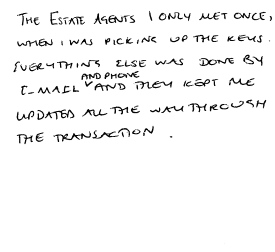 THE ESTATE AGENTS I ONLY MET ONCE,
WHEN I WAS PICKING UP THE KEYS.
EVERYTHING ELSE WAS DONE BY
E-MAIL AND PHONE AND THEY KEPT ME
UPDATED ALL THE WAY THROUGH
THE TRANSACTION.